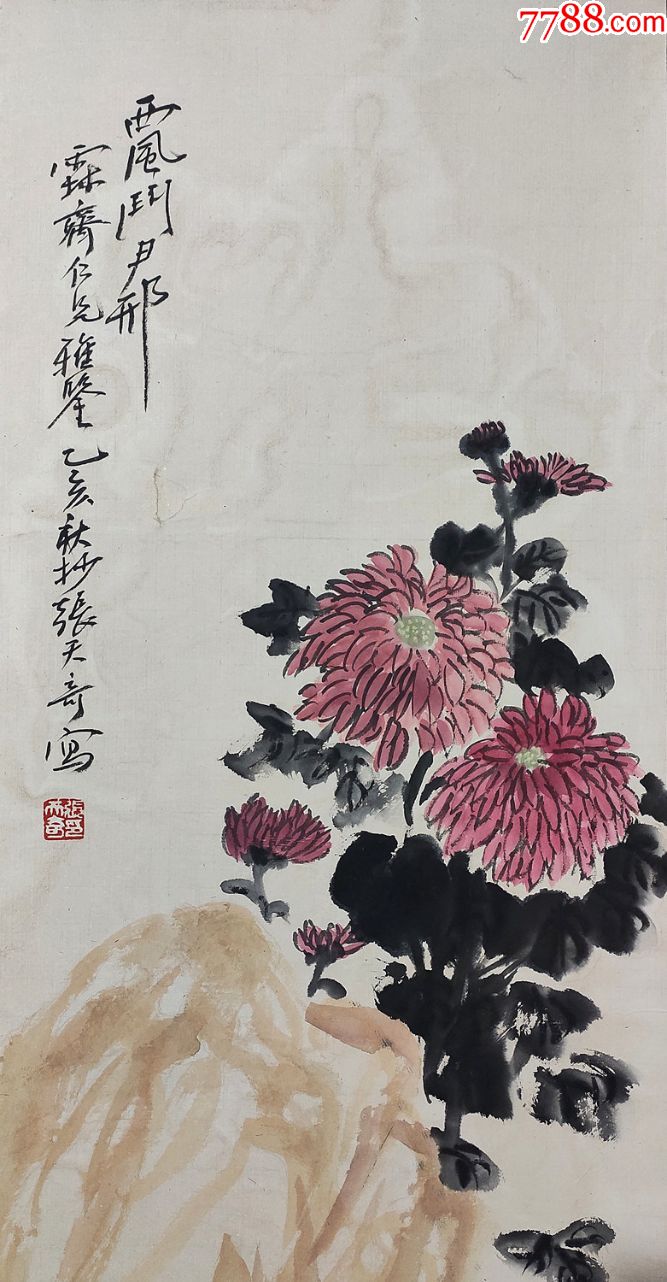 7788.com
西風鬥尹邢
霖齋仁兄雅鑒乙亥秋抄張天奇写
張天奇印